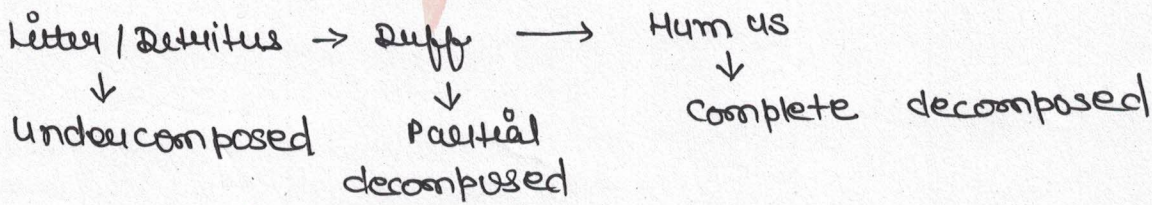 Litter / Detritus → Duff → Humus
↓ ↓ ↓
Undecomposed Partial Complete decomposed
decomposed